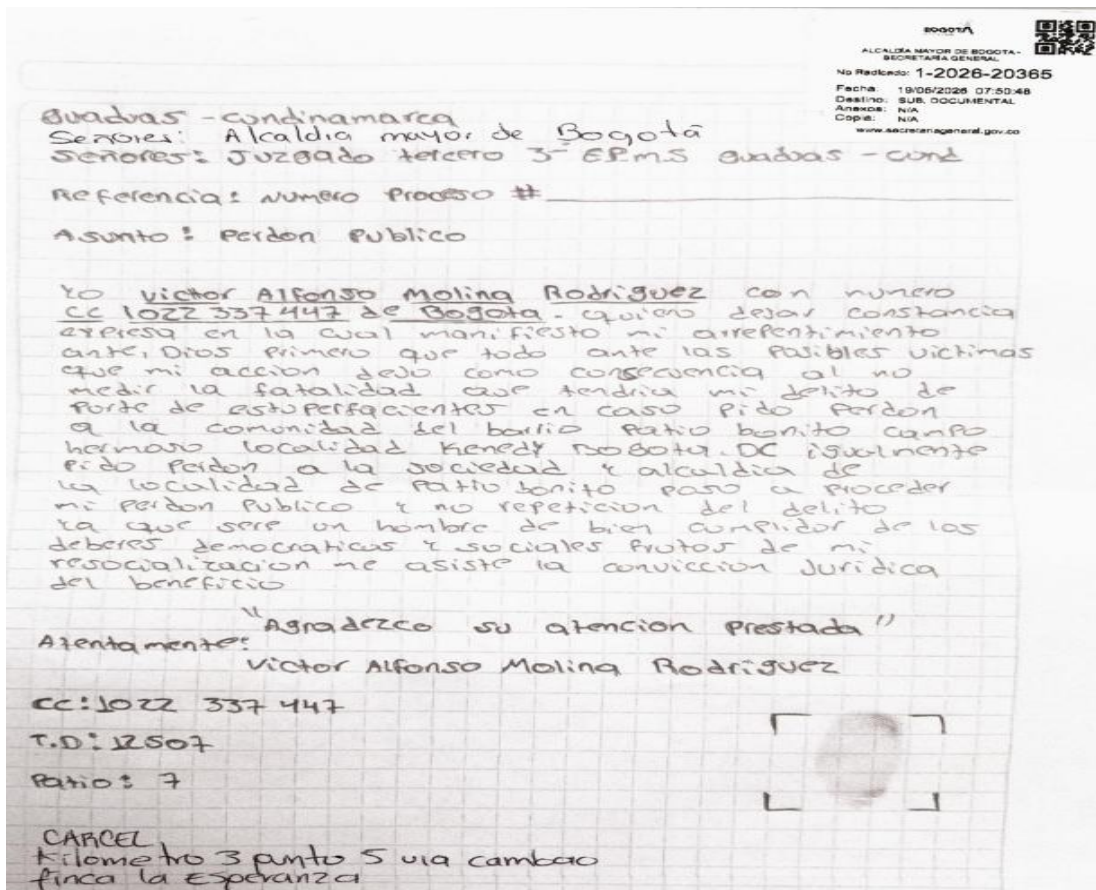 BOGOTÁ
ALCALDÍA MAYOR DE BOGOTA -
SECRETARÍA GENERAL
No Radicado: 1-2026-20365
Fecha: 19/05/2026 07:50:48
Destino: SUB. DOCUMENTAL
Anexos: N/A
Copia: N/A
www.secretariageneral.gov.co
Guaduas - cundinamarca
Señores: Alcaldia mayor de Bogotá
Señores: Juzgado tercero 3- EP.m.s Guaduas - cund
Referencia: Numero Proceso #
Asunto: Perdon Publico
Yo Victor Alfonso Molina Rodriguez con numero
CC 1022 337 447 de Bogota. quiero dejar constancia
expresa en la cual manifiesto mi arrepentimiento
ante, Dios Primero que todo ante las Pasibles victimas
que mi accion dejo como consecuencia al no
medir la fatalidad que tendria mi delito de
Porte de estuperfacientes en caso Pido Perdon
a la comunidad del barrio Patio bonito campo
hermoso localidad Kenedy Bogota. DC igualmente
Pido Perdon a la sociedad y alcaldia de
la localidad de Patio bonito paso a Proceder
mi perdon Publico y no repeticion del delito
ya que sere un hombre de bien cumplidor de los
deberes democraticos y sociales frutos de mi
resocializacion me asiste la conviccion Juridica
del beneficio
"Agradezco su atencion Prestada"
Atentamente:
Victor Alfonso Molina Rodriguez
CC: 1022 337 447
T.D: 12507
Patio: 7
CARCEL
Kilometro 3 punto 5 via cambao
finca la Esperanza